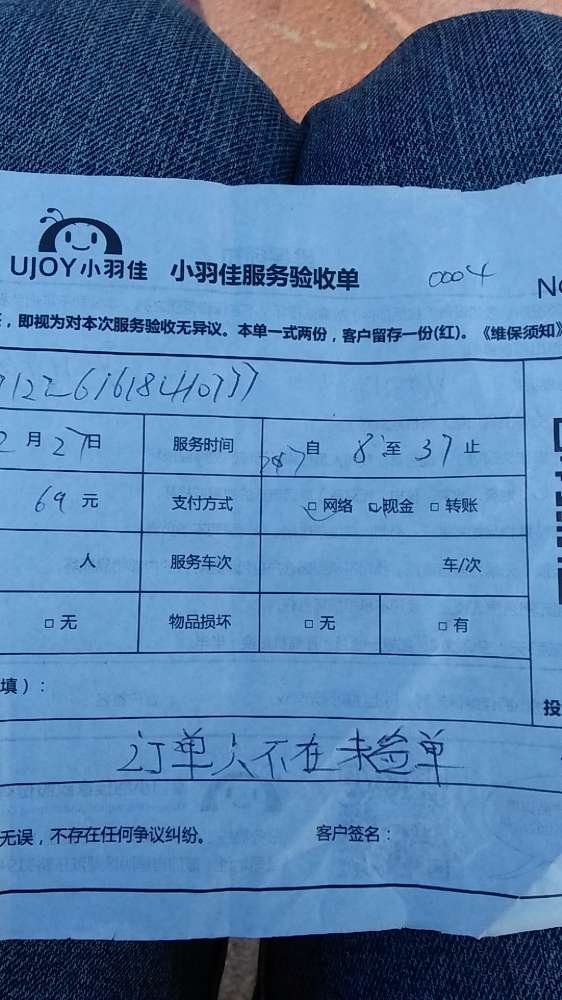 UJOY小羽佳 小羽佳服务验收单 0004 No
，即视为对本次服务验收无异议。本单一式两份，客户留存一份(红)。《维保须知》
月27日 服务时间 自 8 至 37 止
69 元 支付方式 □ 网络 □ 现金 □ 转账
人 服务车次 车/次
□ 无 物品损坏 □ 无 □ 有
填）：
投
订单人不在未签单
无误，不存在任何争议纠纷。 客户签名：